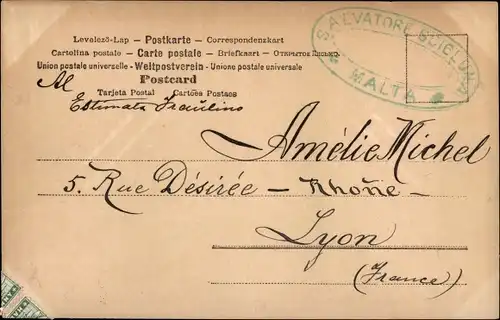 Levelező-Lap — Postkarte — Correspondenzkart
Cartolina postale — Carte postale — Briefkaart — Открытое письмо
Union postale universelle — Weltpostverein — Unione postale universale
Postcard
Tarjeta Postal Cartões Postaes
SALVATORE
MALTA
Al
Estimata Fraülino
Amélie Michel
5. Rue Désirée — Rhône —
Lyon
(France)